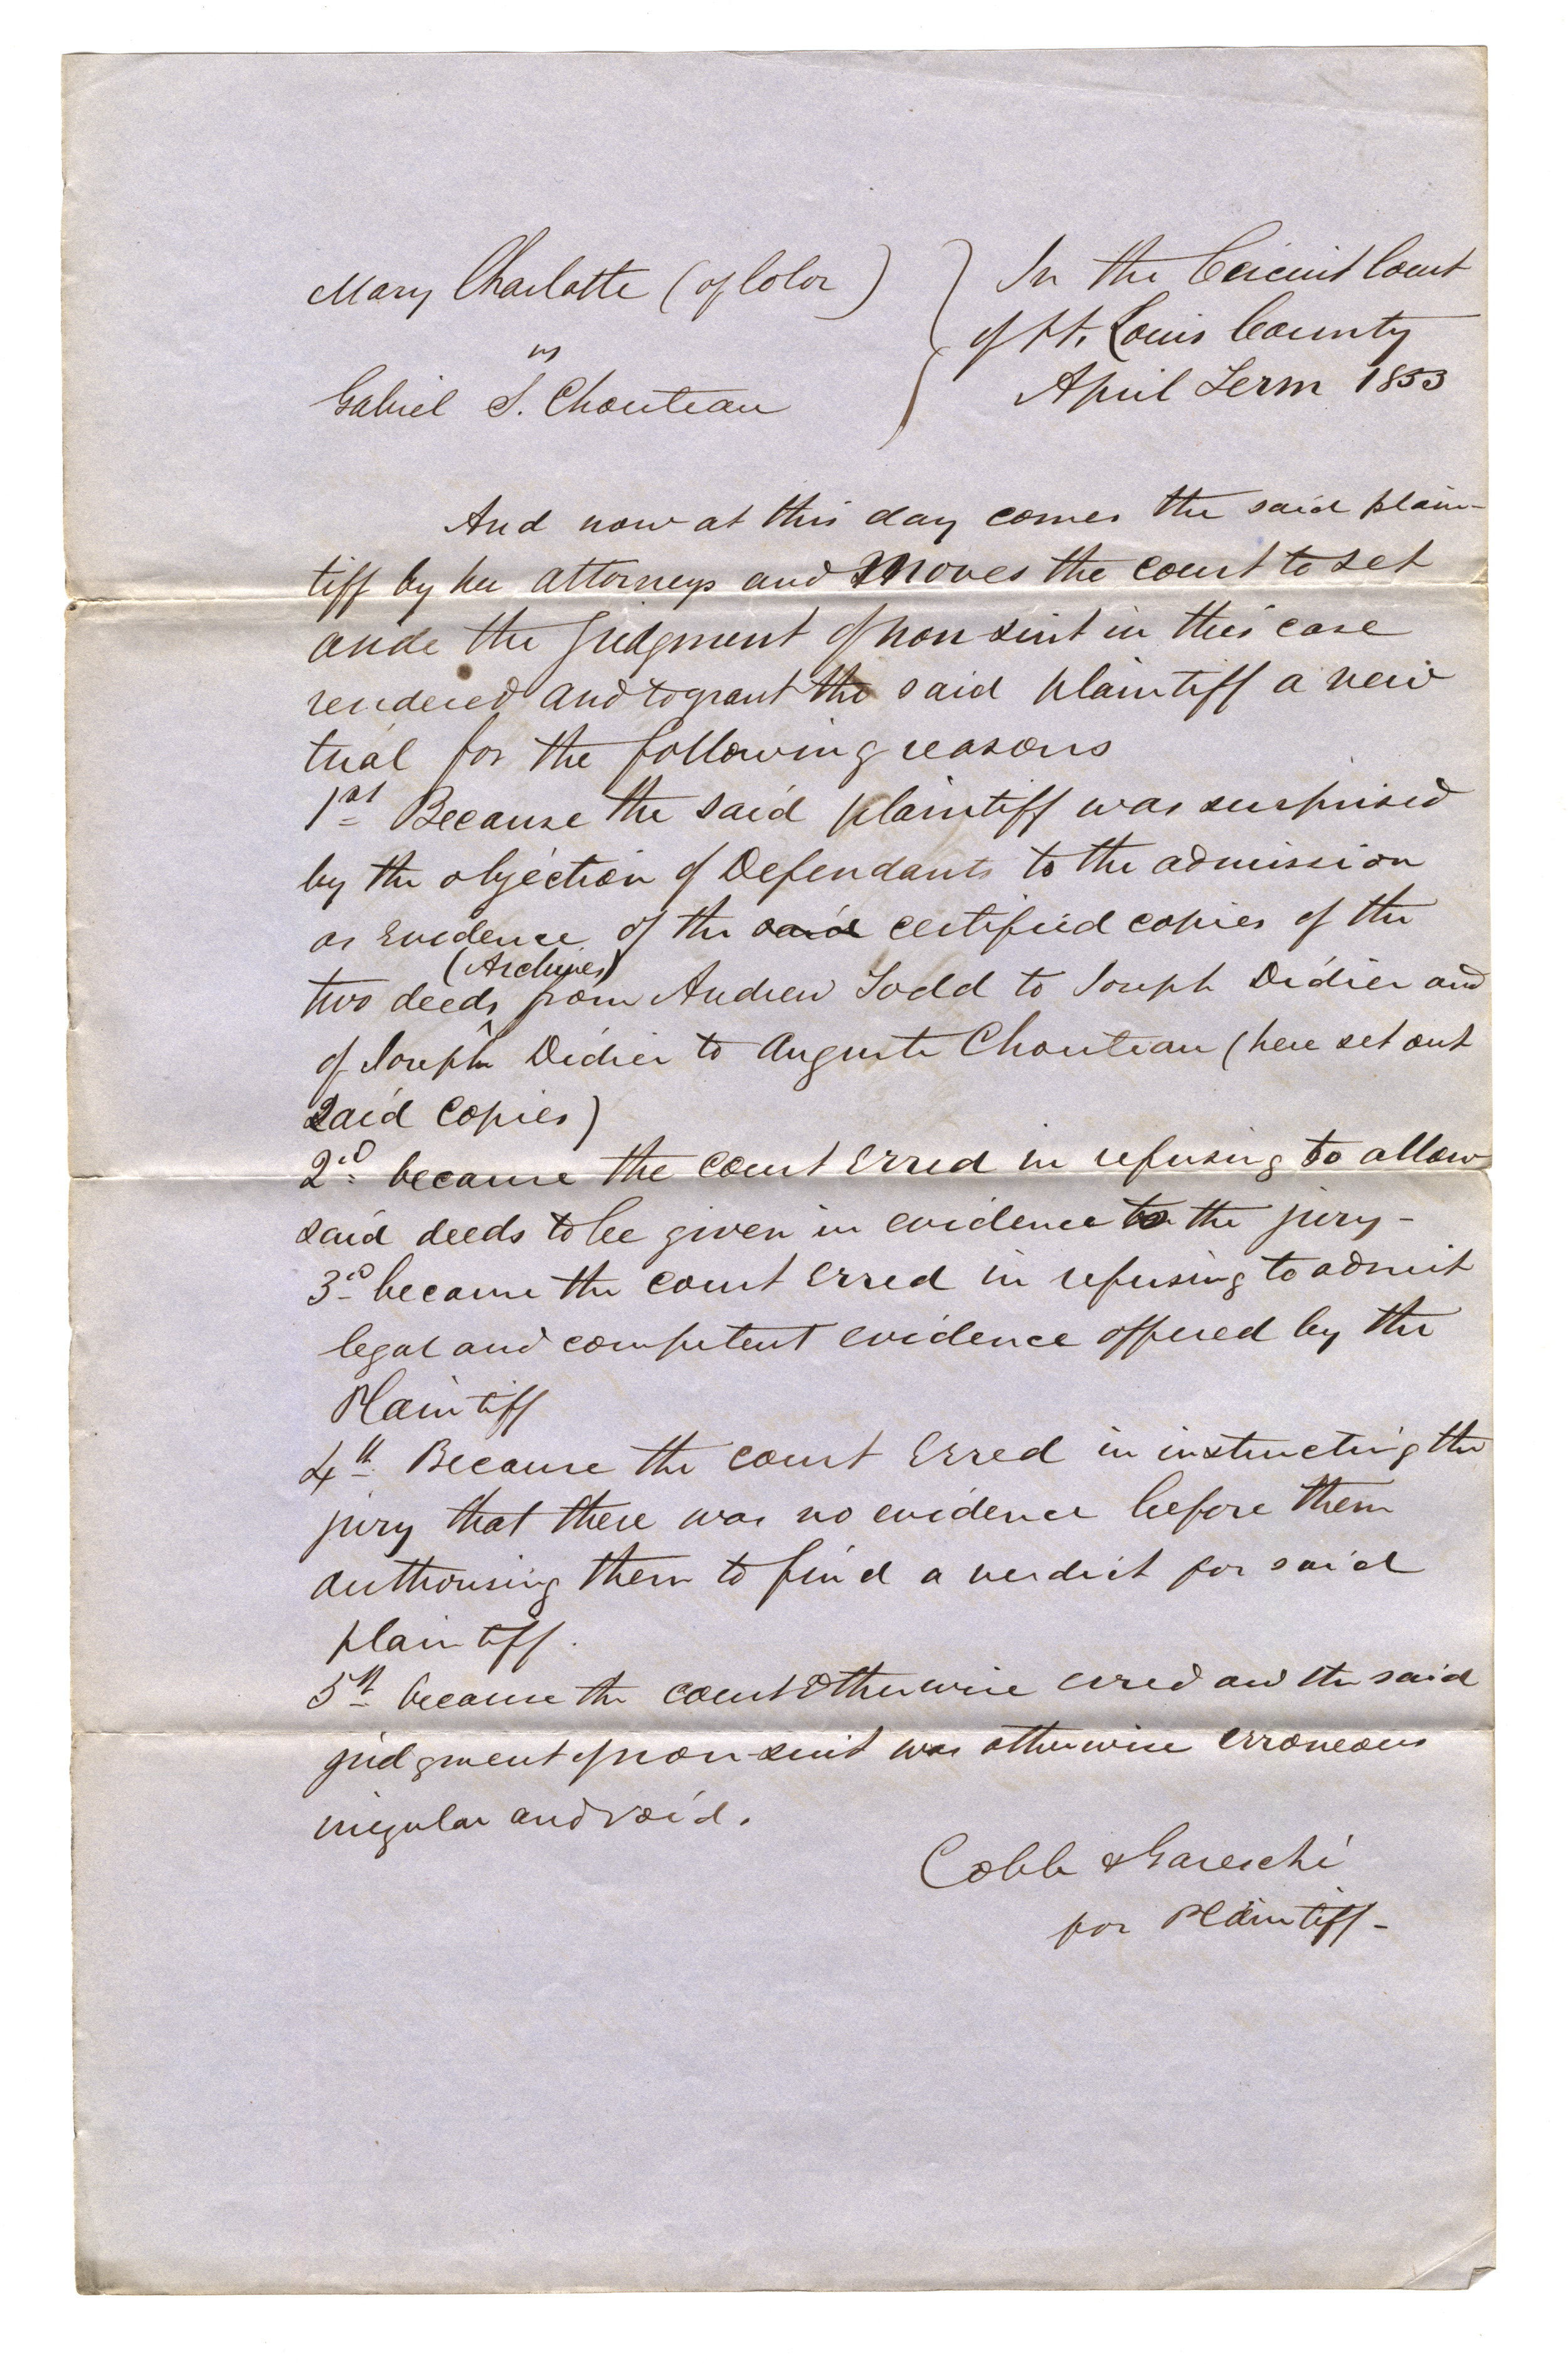 Mary Charlotte (of Color) } In the Circuit Court
of St. Louis County
vs
Gabriel S. Chouteau April Term 1853
And now at this day comes the said plain-
tiff by her attorneys and moves the court to set
aside the judgment of non suit in this case
rendered and to grant the said plaintiff a new
trial for the following reasons
1st Because the said plaintiff was surprised
by the objection of Defendants to the admission
as evidence of the said certified copies of the
(Archives)
two deeds ^ from Andrew Todd to Joseph Didier and
of Joseph Didier to Auguste Chouteau (here set out
said copies)
2d because the court erred in refusing to allow
said deeds to be given in evidence to the jury -
3d because the court erred in refusing to admit
legal and competent evidence offered by the
Plaintiff
4th Because the court erred in instructing the
jury that there was no evidence before them
authorising them to find a verdict for said
plaintiff.
5th because the court otherwise erred and the said
judgment of non-suit was otherwise erroneous
irregular and void.
Cobb & Gareschi
for Plaintiff -